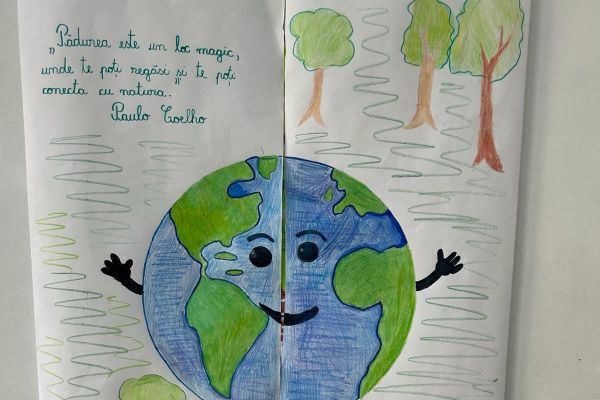 „Pădurea este un loc magic,
unde te poți regăsi și te poți
conecta cu natura."
Paulo Coelho